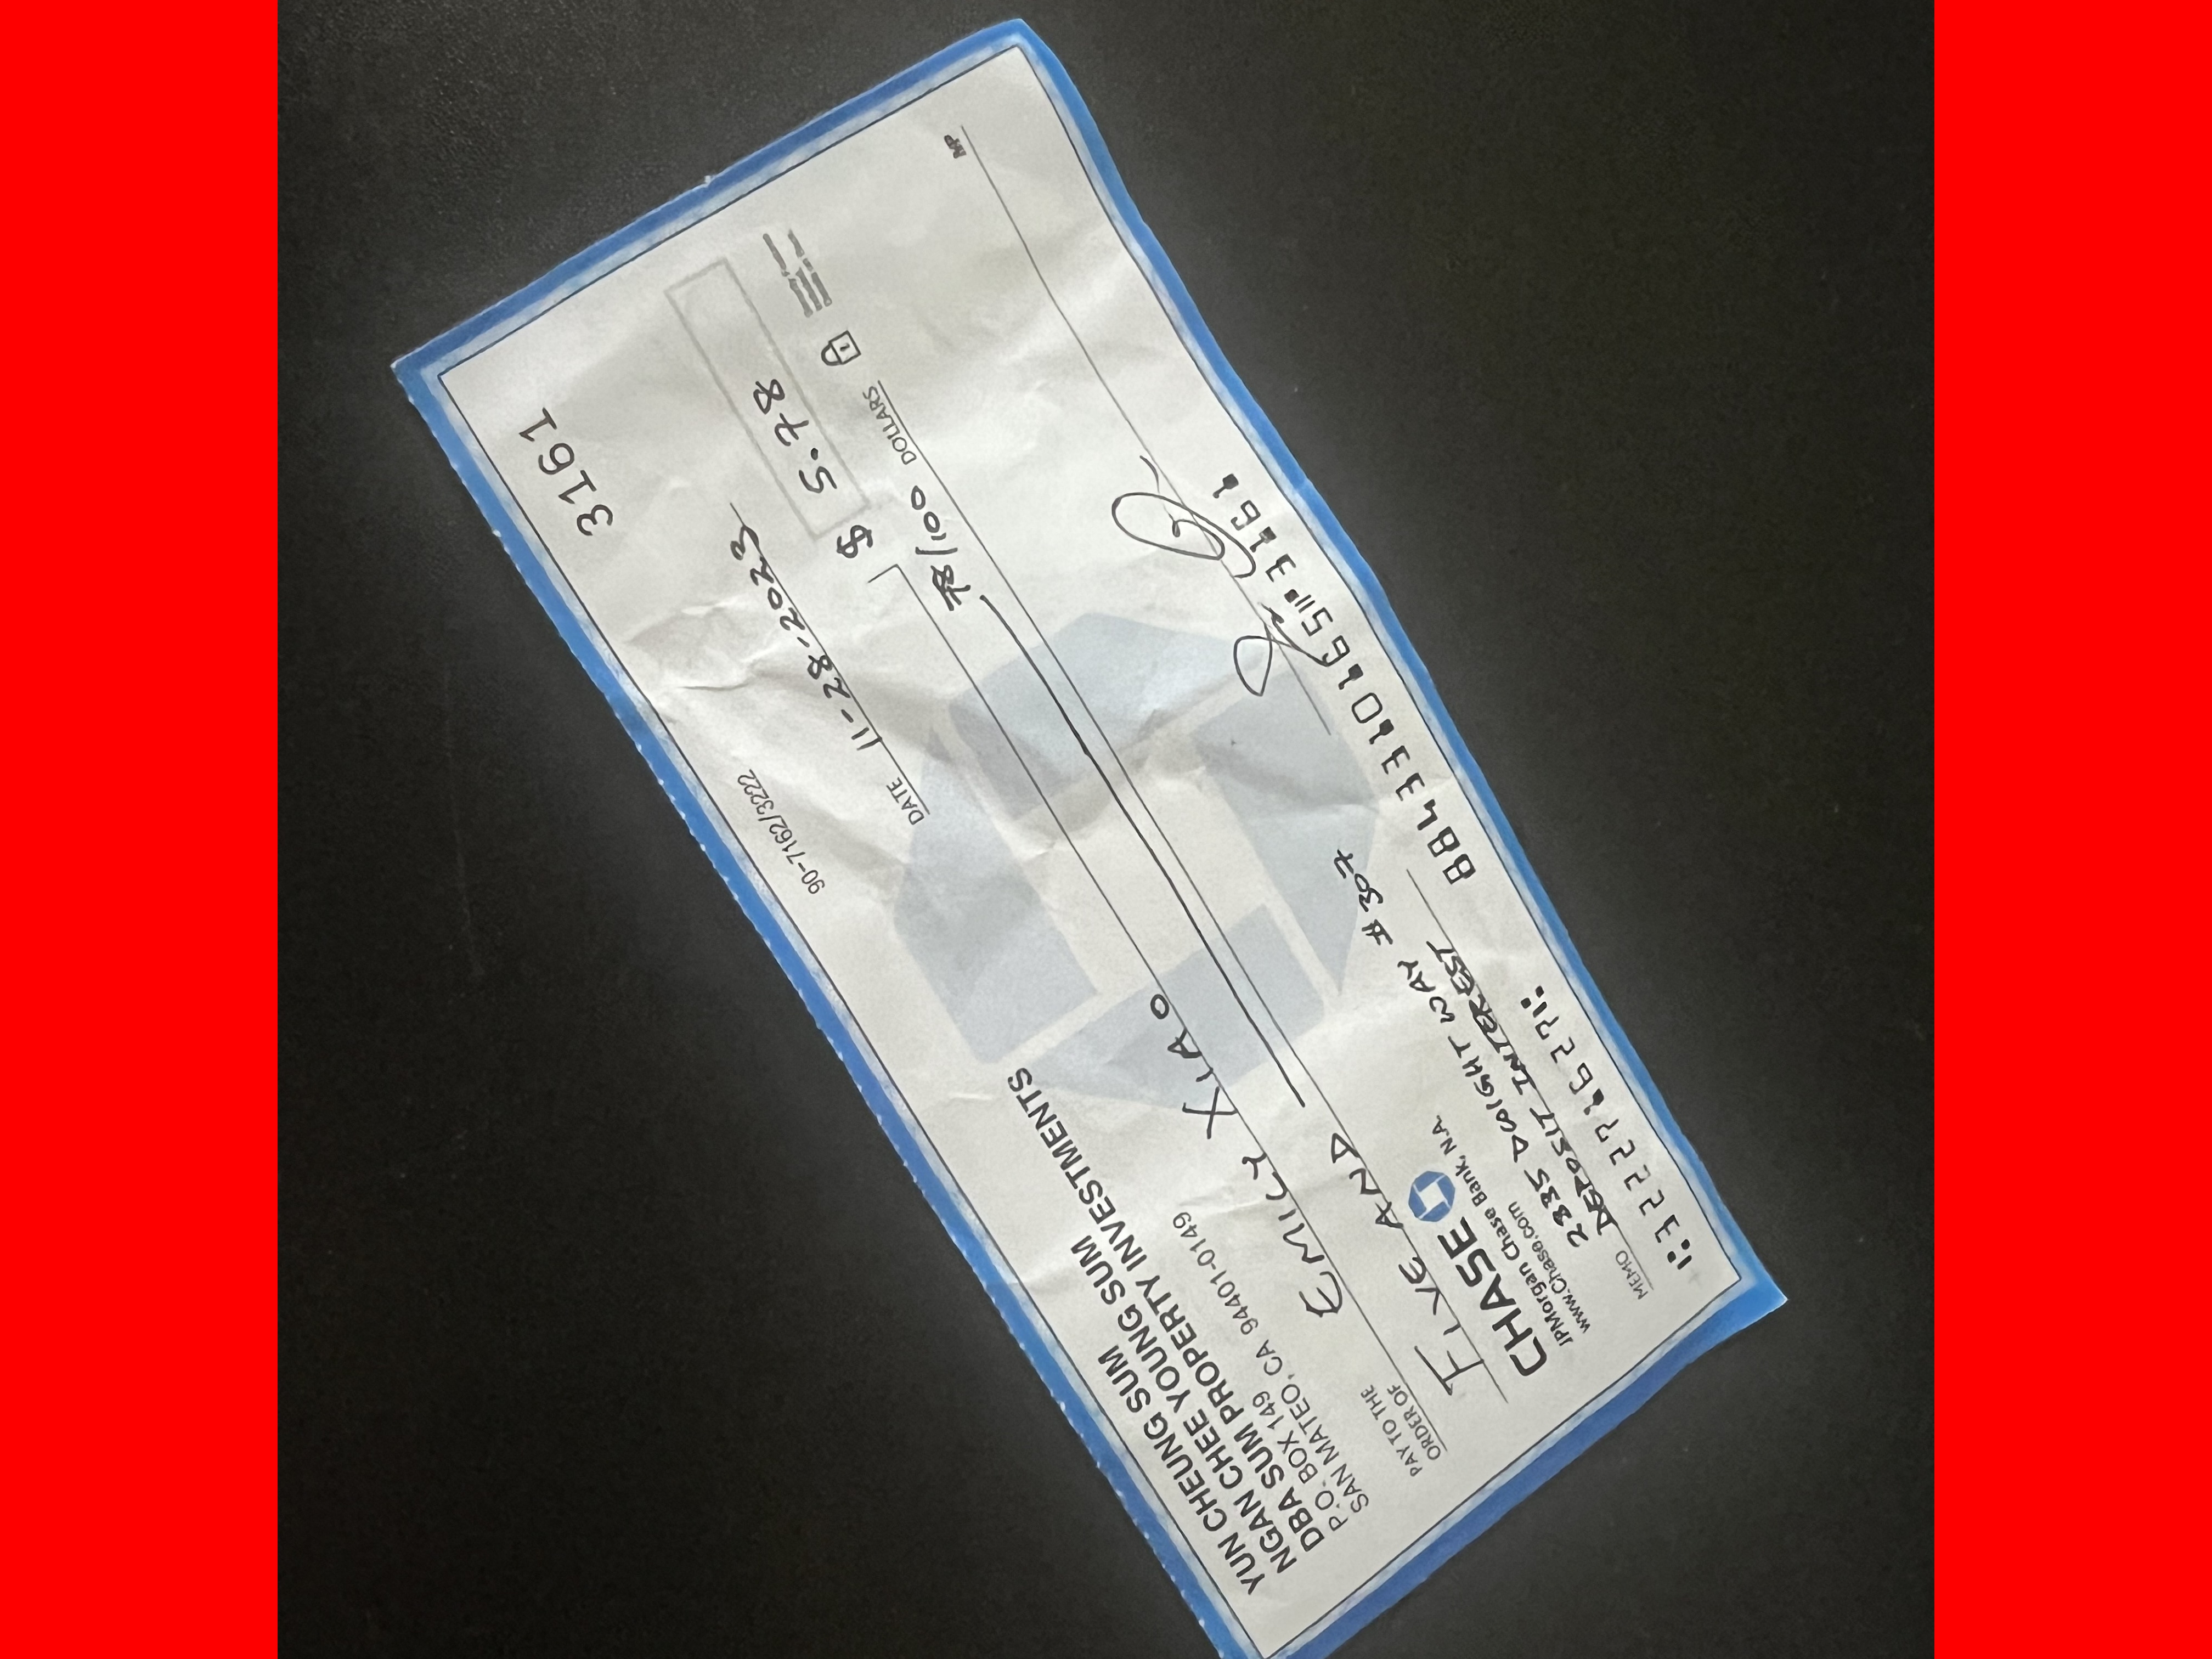 3161
YUN CHEUNG SUM
NGAN CHEE YOUNG SUM
DBA SUM PROPERTY INVESTMENTS
P.O. BOX 149
SAN MATEO, CA 94401-0149
90-7162/3222
DATE 11-28-2023
PAY TO THE
ORDER OF EMILY XIAO $ 5.78
FIVE AND 78/100 DOLLARS
CHASE
JPMorgan Chase Bank, N.A.
www.Chase.com
2335 DWIGHT WAY #307
MEMO DEPOSIT INTEREST
MP
⑆322271627⑆ 8843310165⑈3161